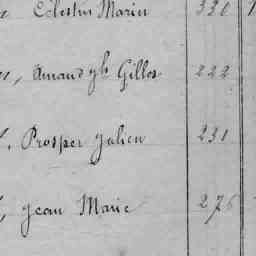 Célestin Marin 320
Amand gh Gilles 222
Prosper Julien 231
Jean Marie 276